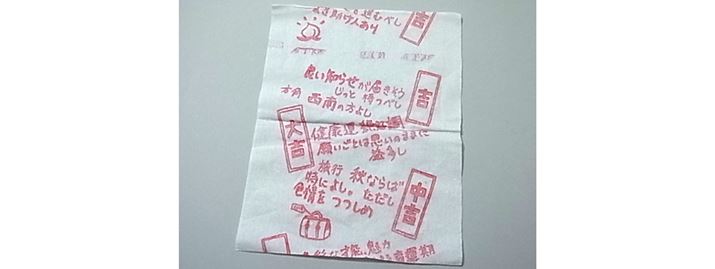 進むべし
助け人あり
中吉
良い知らせが届きそう
じっと待つべし
方角 西南の方よし
吉
大吉
健康運 絶好調
願いごとは思いのままに
益多し
旅行 秋ならば
特によし。ただし
色情をつつしめ
中吉
才能、魅力
運期